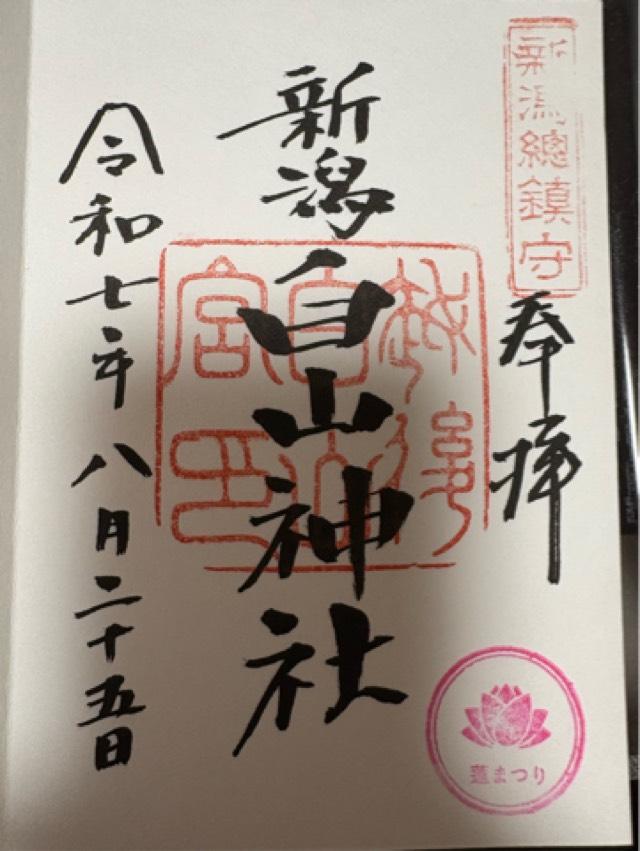 新潟總鎮守
奉拝
新潟白山神社
越後
白山
宮印
令和七年八月二十五日
蓮まつり